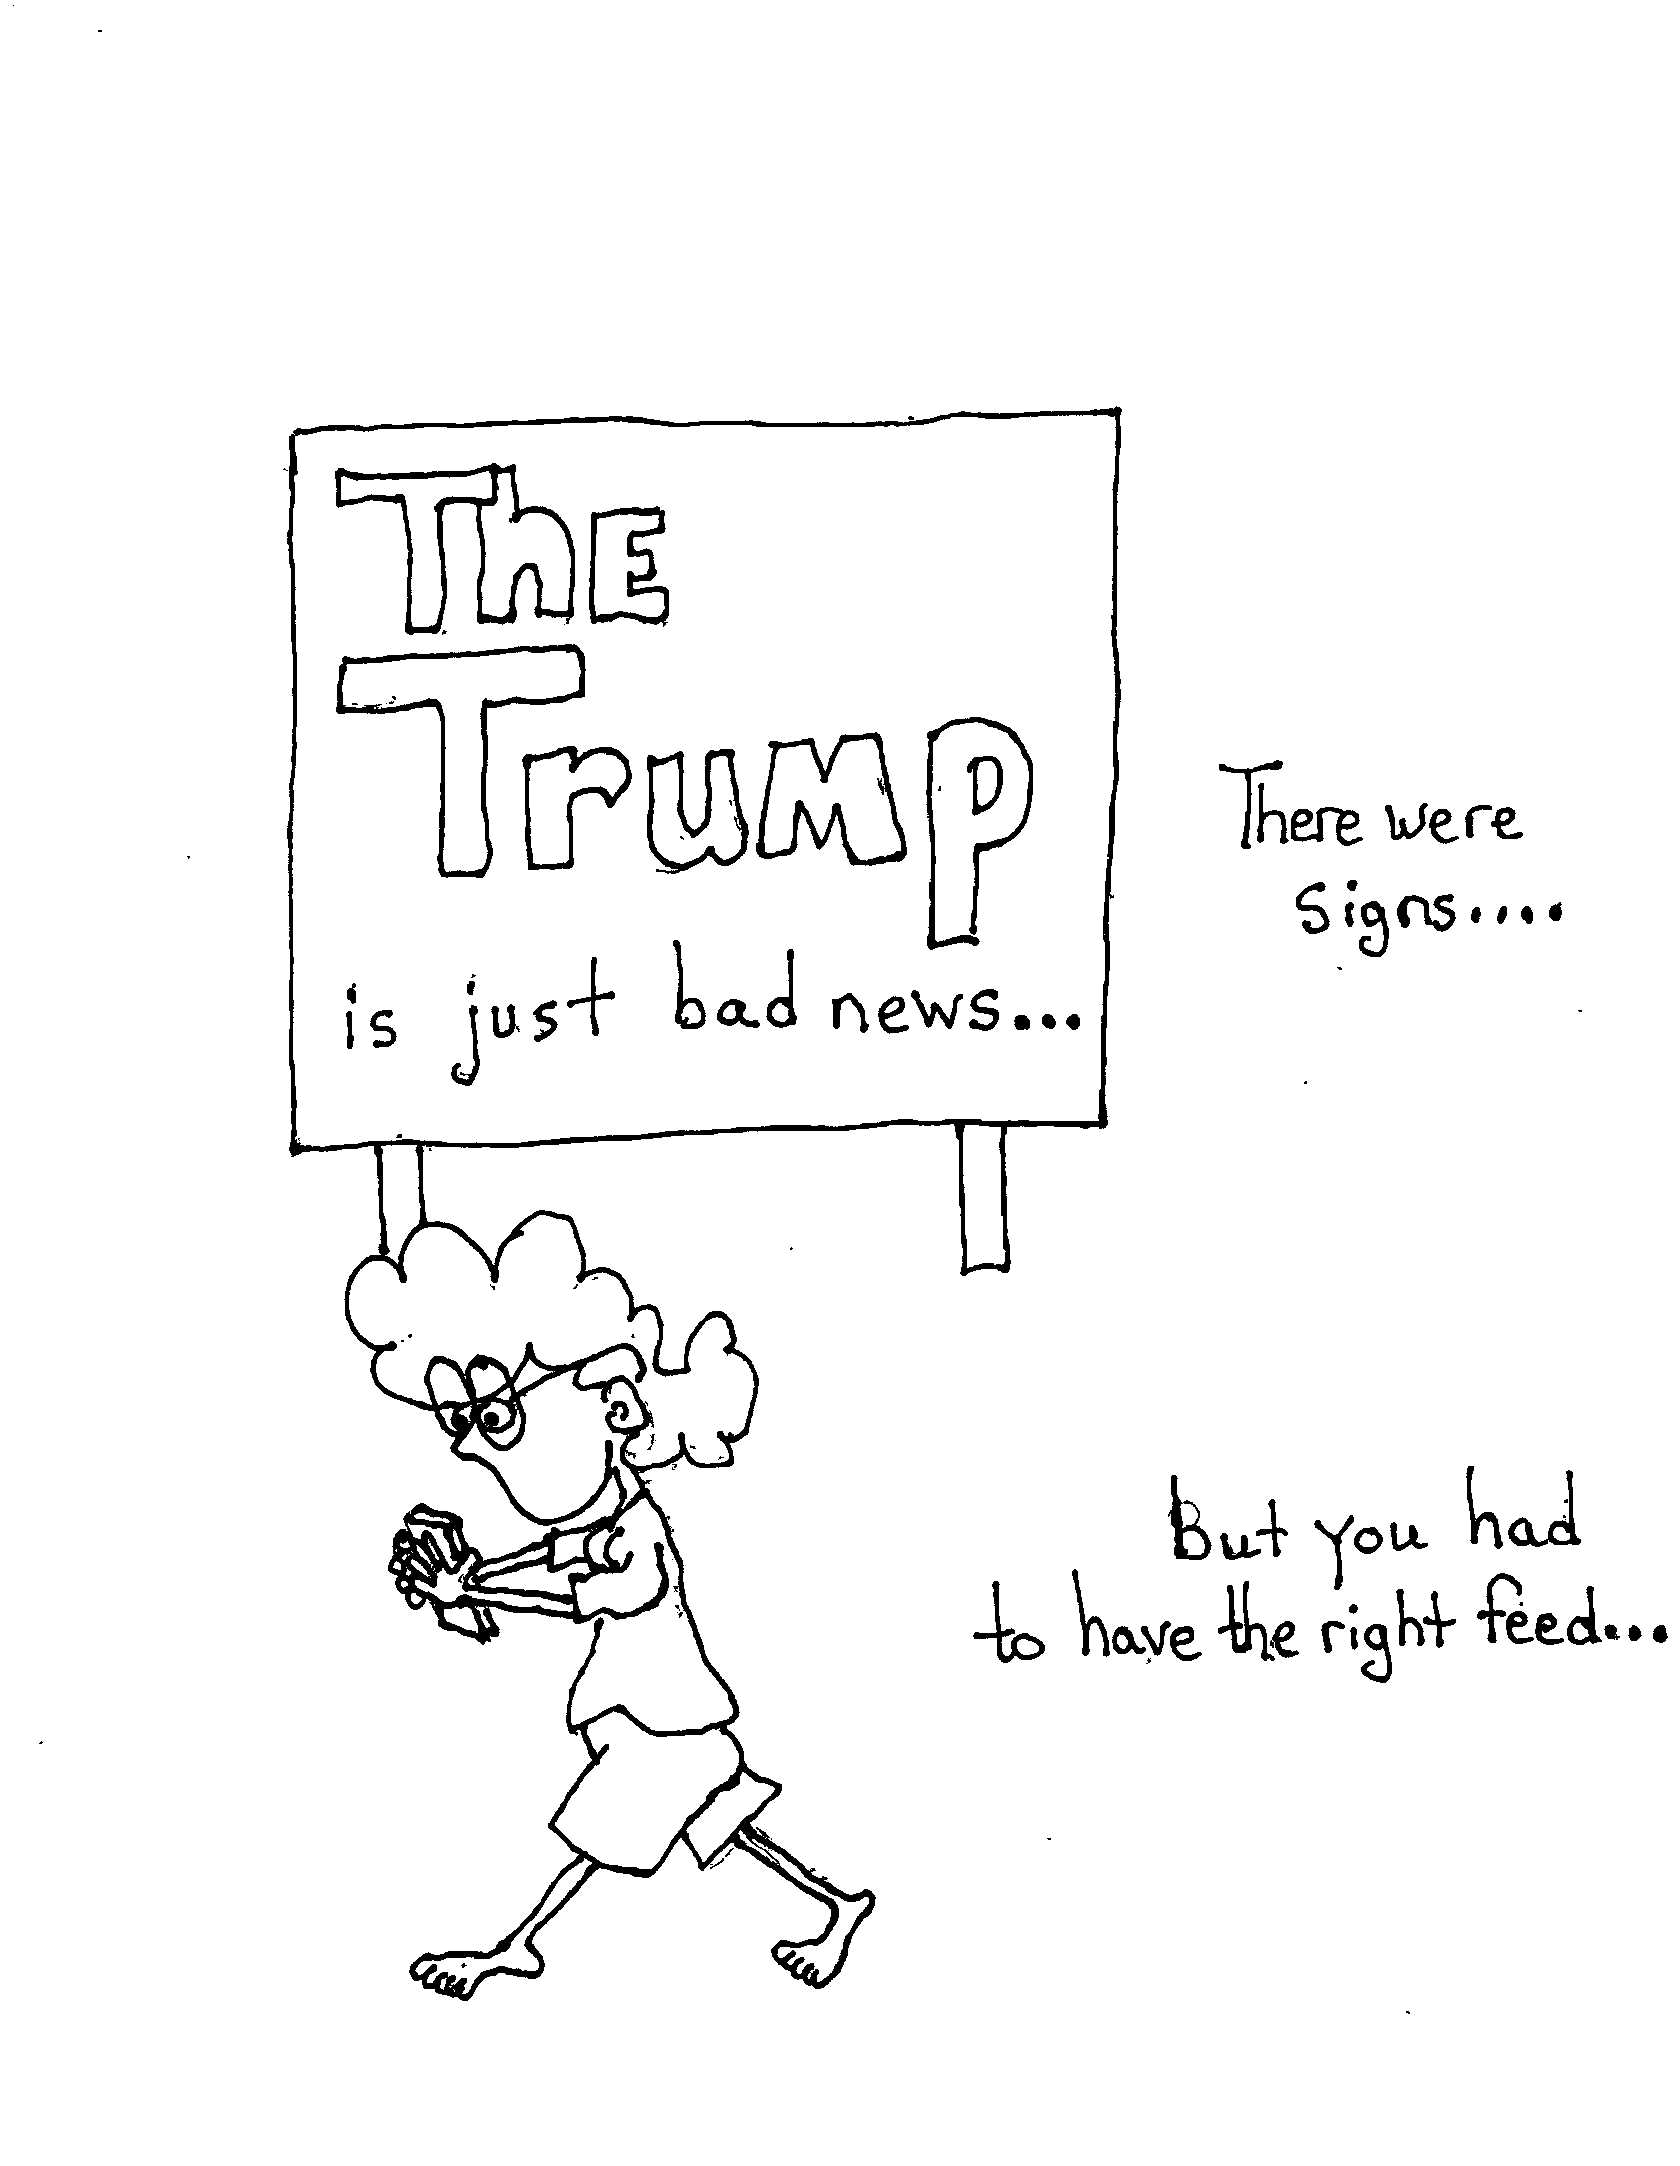 The
Trump
is just bad news...
There were
signs....
But you had
to have the right feed...